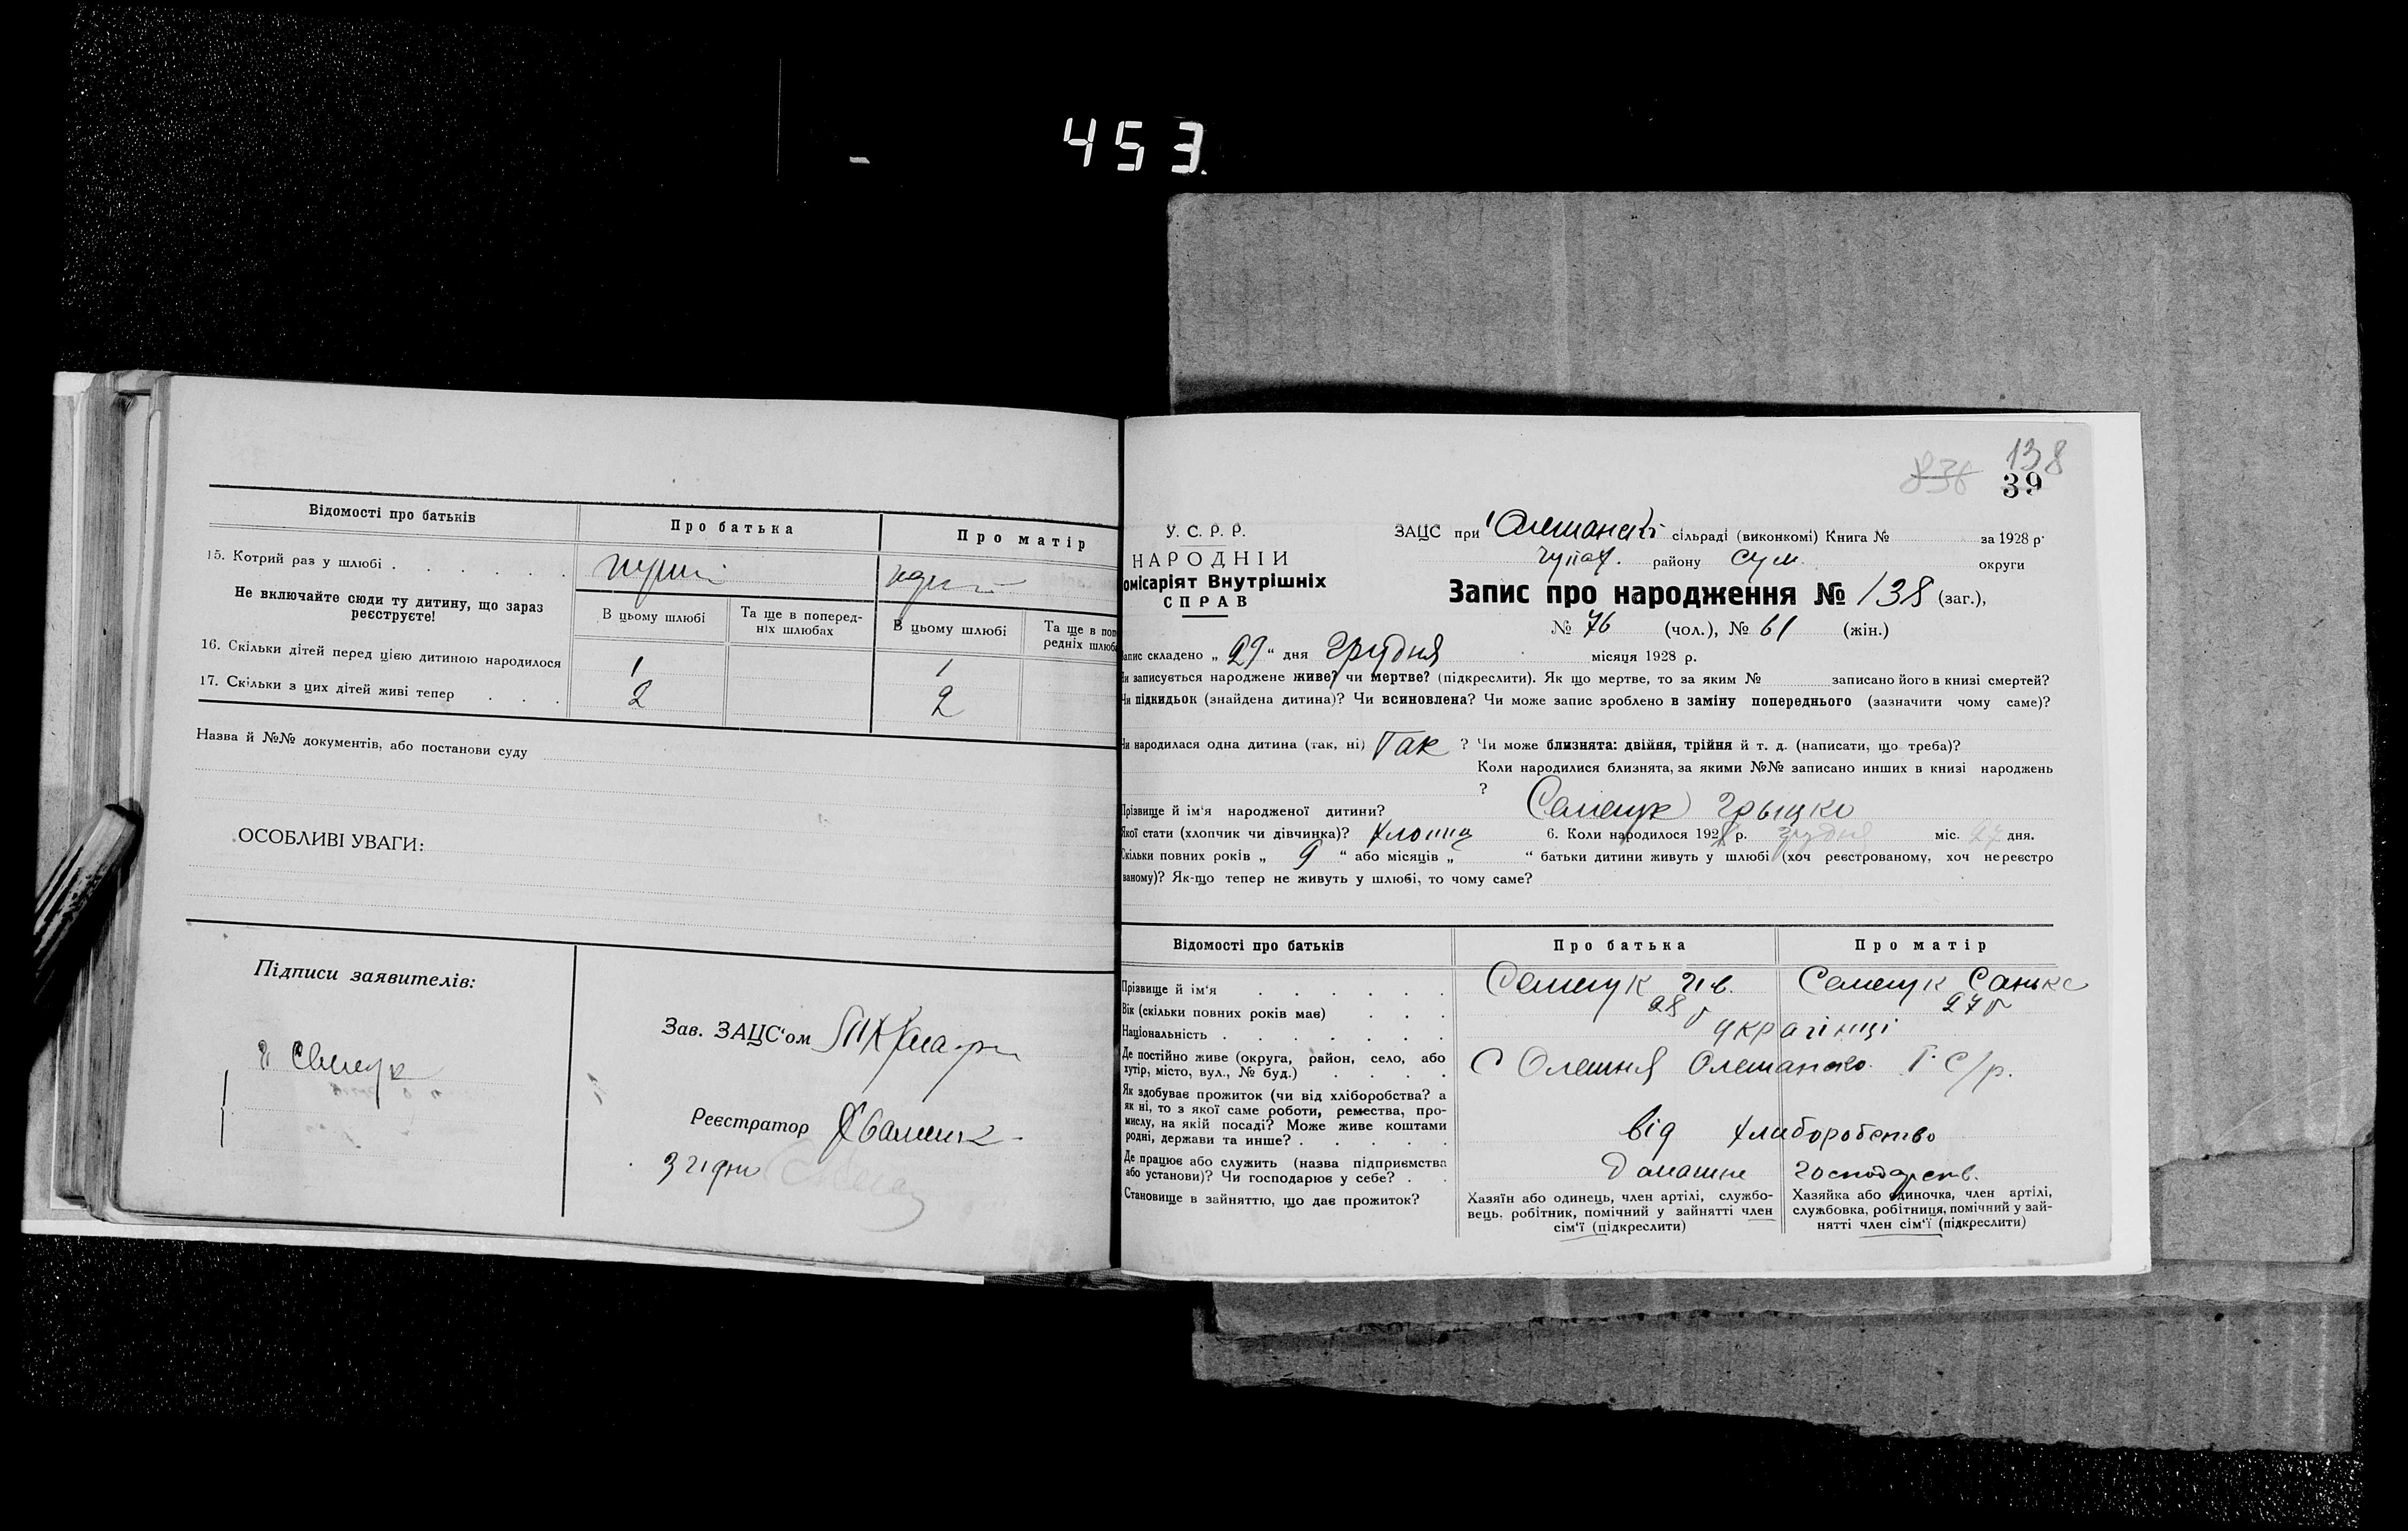 453.
Відомості про батьків
Про батька
Про матір
15. Котрий раз у шлюбі . . . . . .
Не включайте сюди ту дитину, що зараз
реєструєте!
В цьому шлюбі
Та ще в поперед-
ніх шлюбах
В цьому шлюбі
Та ще в поп
редніх шлюб
16. Скільки дітей перед цією дитиною народилося
1
1
17. Скільки з цих дітей живі тепер . . .
2
2
Назва й №№ документів, або постанови суду
ОСОБЛИВІ УВАГИ:
Підписи заявителів:
Зав. ЗАЦС'ом
Реєстратор
138
39
У. С. Р. Р.
НАРОДНІЙ
омісаріят Внутрішніх
СПРАВ
ЗАЦС при сільраді (виконкомі) Книга № за 1928 р.
району Сум. округи
Запис про народження № 138 (заг.),
№ 76 (чол.), № 61 (жін.)
апис складено „ 29 “ дня Грудня місяця 1928 р.
и записується народжене живе? чи мертве? (підкреслити). Як що мертве, то за яким № записано його в книзі смертей?
Чи підкидьок (знайдена дитина)? Чи всиновлена? Чи може запис зроблено в заміну попереднього (зазначити чому саме)?
Чи народилася одна дитина (так, ні) Так ? Чи може близнята: двійня, трійня й т. д. (написати, що треба)?
Коли народилися близнята, за якими №№ записано инших в книзі народжень
?
Прізвище й ім'я народженої дитини? Семеук Грыцко
Якої стати (хлопчик чи дівчинка)? 6. Коли народилося 1928 р. грудня міс. 27 дня.
Скільки повних років „ 9 “ або місяців „ “ батьки дитини живуть у шлюбі (хоч реєстрованому, хоч нереєстро
ваному)? Як-що тепер не живуть у шлюбі, то чому саме?
Відомості про батьків
Про батька
Про матір
Прізвище й ім'я . . . . . .
Семеук Ив.
Семеук Санька
Вік (скільки повних років має) . . .
28 г
27 г
Національність . . . . . . .
українці
Де постійно живе (округа, район, село, або
хутір, місто, вул., № буд.) . . . .
С Олешня С/р.
Як здобуває прожиток (чи від хліборобства? а
як ні, то з якої саме роботи, ремества, про-
мислу, на якій посаді? Може живе коштами
родні, держави та инше? . . . . .
від хлиборобство
Де працює або служить (назва підприємства
або установи)? Чи господарює у себе? . .
Домашне господарств.
Становище в зайняттю, що дає прожиток?
Хазяїн або одинець, член артілі, службо-
вець, робітник, помічний у зайнятті член
сім'ї (підкреслити)
Хазяйка або одиночка, член артілі,
службовка, робітниця, помічний у зай-
нятті член сім'ї (підкреслити)